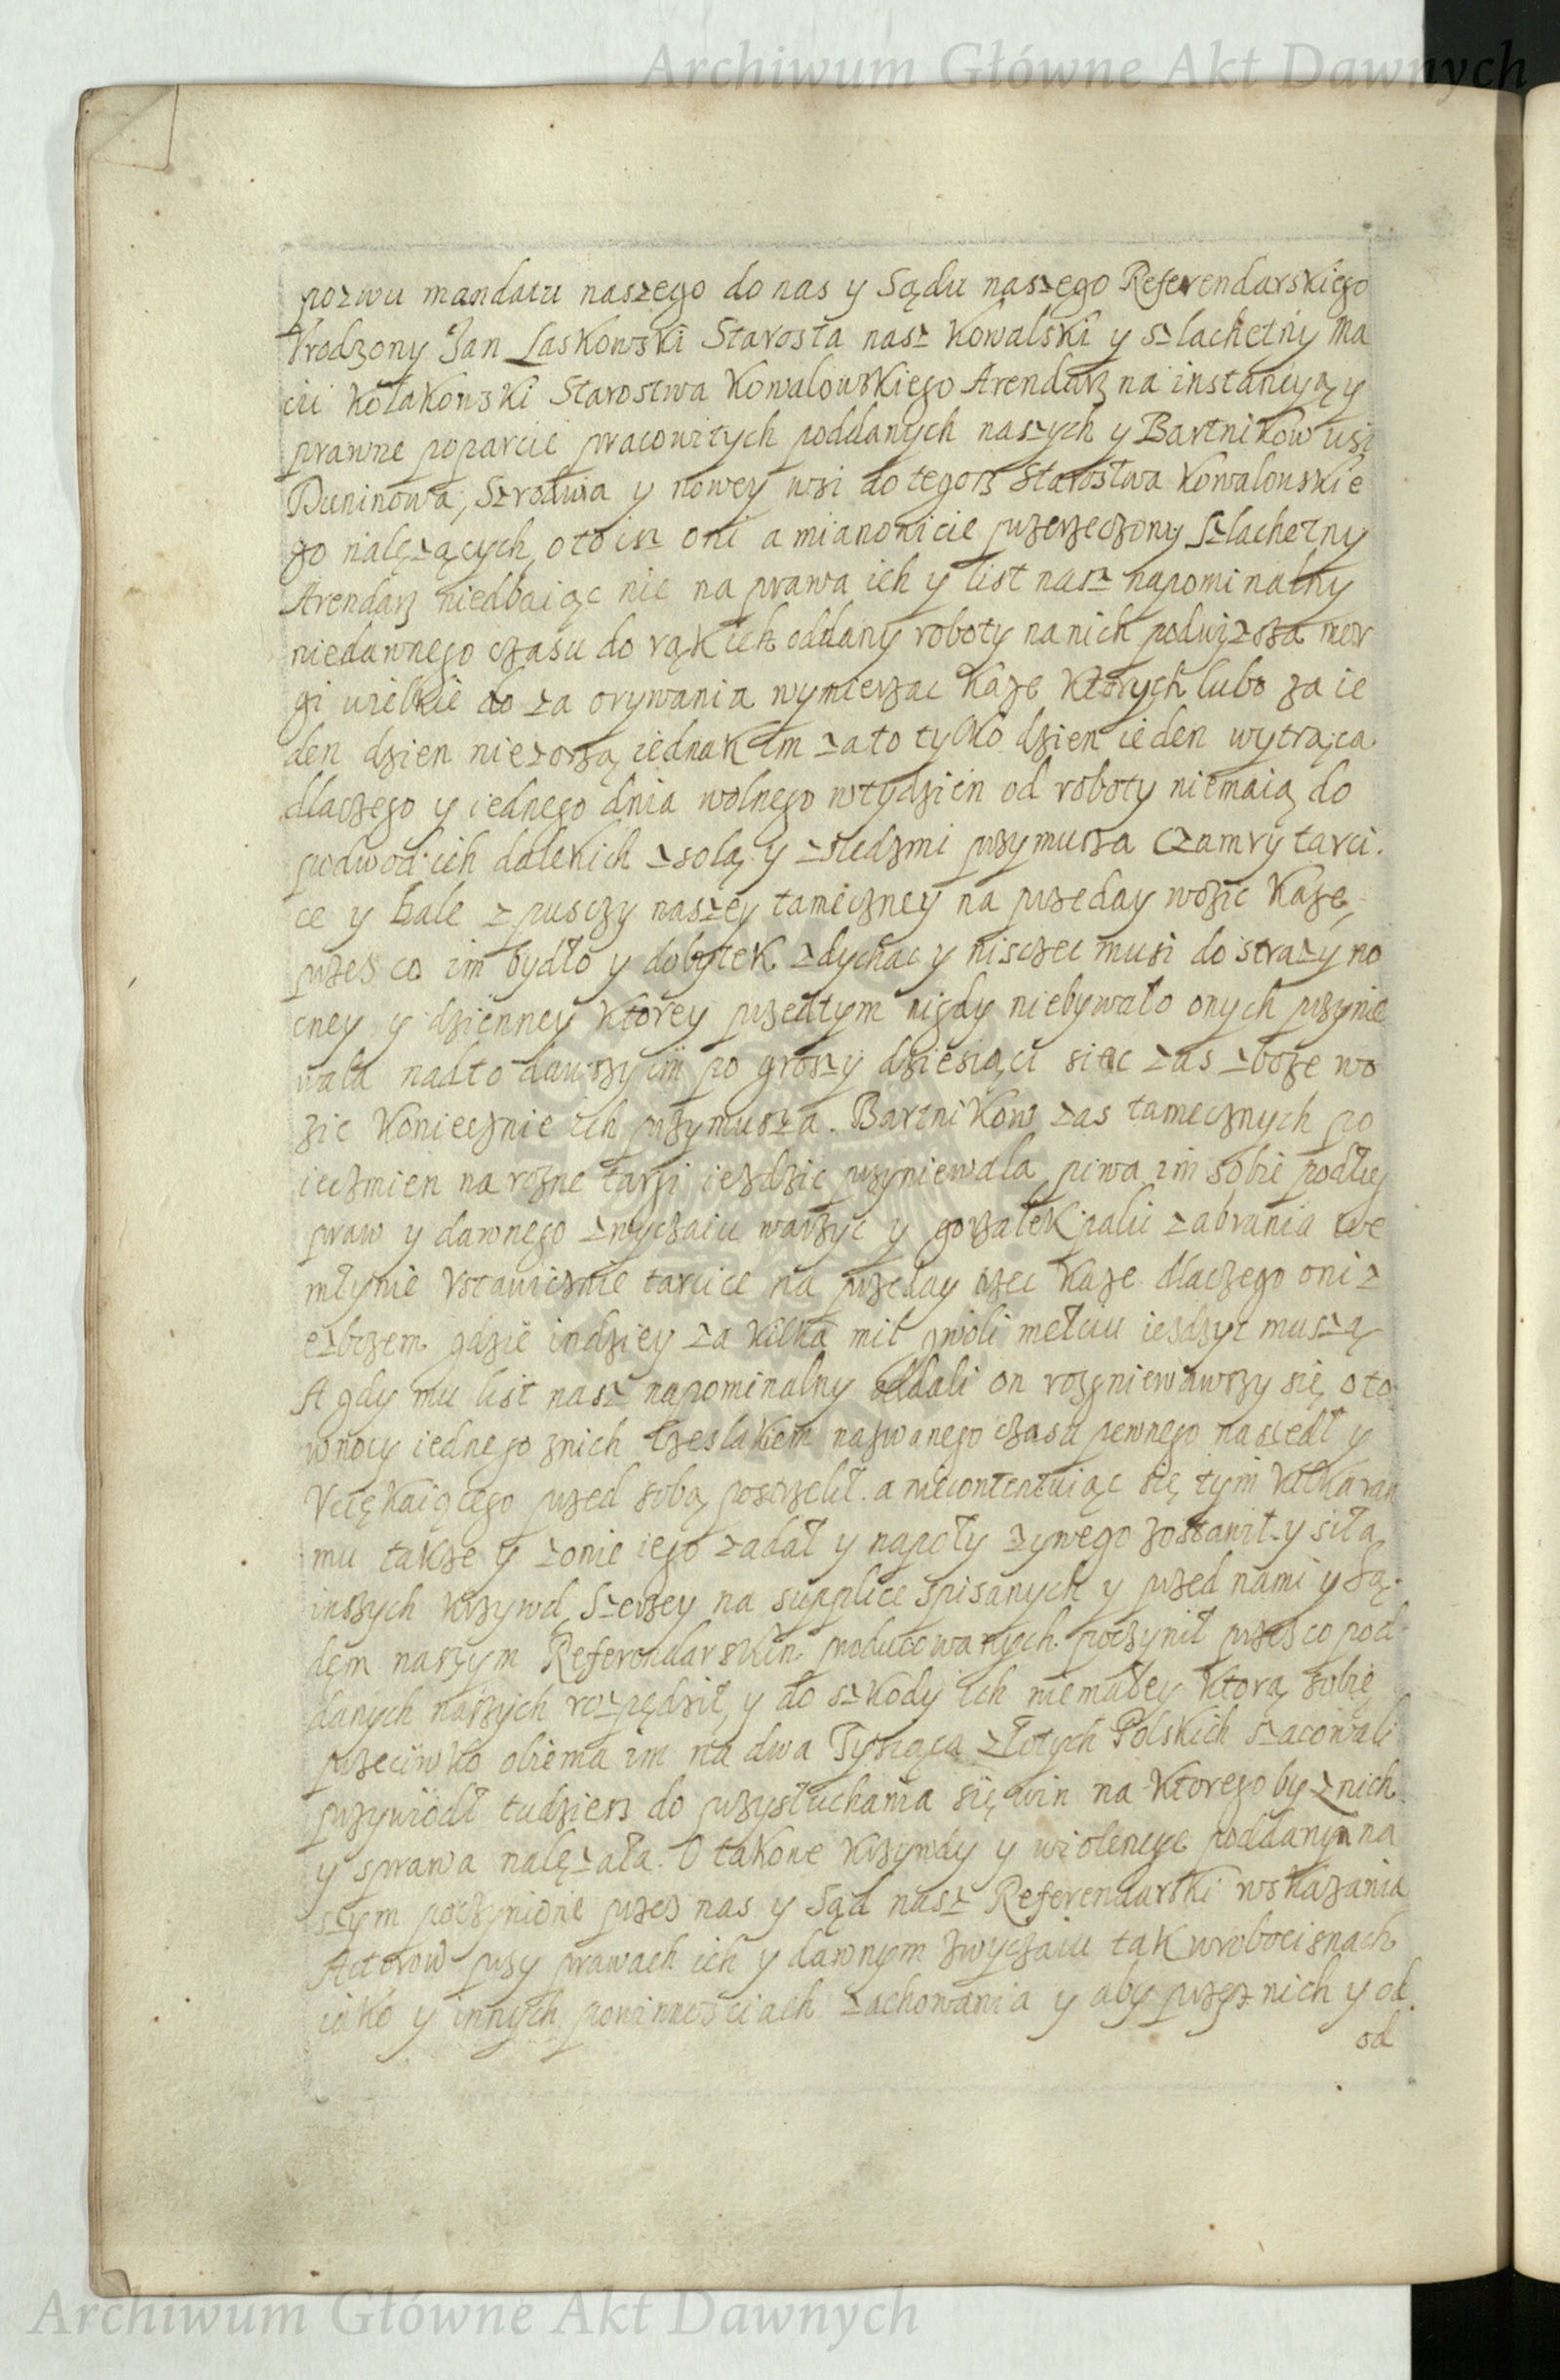 Archiwum Główne Akt Dawnych
pozwu mandatu naszego do nas y Sądu naszego Referendarskiego
Vrodzony Jan Laskowski Starosta nasz Kowalski y szlachetny Ma
cii Kołakowski Starostwa Kowalowskiego Arendarz na instancyą y
prawne poparcie pracowitych poddanych naszych y Bartnikow wsi
Duninowa, Szrodwia y nowey wsi do tegosz Starostwa Kowalowskie
go nalęzących, o to isz oni a mianowicie przerzeczony szlachetny
Arendarz niedbaiąc nic na prawa ich y list nasz napominalny
niedawnego czasu do rąk ich oddany roboty na nich podwyzsza mor
gi wielkie do za orywania wymierzac kaze ktorych lubo za ie
den dzien niezorzą iednak im za to tylko dzien ieden wytrąca
dlaczego y iednego dnia wolnego wtydzien od roboty niemaią do
podwod ich dalekich z solą y z sledzmi przymusza czamry tarci
ce y bale z pusczy naszey tameczney na przeday wozic kaze,
przes co im bydło y dobytek zdychac y nisczec musi do strazy no
cney y dzienney ktorey przedtym nigdy niebywało onych przynie
wala nadto dawszy im po groszy dziesiąci siec zas zboze wo
zic koniecznie ich przymusza. Bartnikow zas tamecznych po
ieczmien na rozne targi iezdzic przyniewala, piwa im sobie podług
praw y dawnego zwyczaiu warzyc y gorzałek palic zabrania we
młynie vstawicznie tarcice na przeday rzec kaze dlaczego oni z
ezbozem gdzie indziey za kilka mil gwoli mełciu iezdzyc muszą
A gdy mu list nasz napominalny oddali on rozgniewawszy się o to
wnocy iednego znich Czeslakiem nazwanego czasu pewnego naszedł y
vciękaiącego przed sobą postrzelił. a niecontentuiąc się tym kilka ran
mu takze y zonie iego zadał y napoły zywego zostawił y siła
inszych krzywd szerzey na supplice spisanych y przed nami y Są
dęm naszym Referendarskim producowanych poczynił przes co pod
danych naszych rozpędził, y do szkody ich niemałey ktorą sobie
przeciwko obiema im na dwa Tysiąca złotych Polskich szacowali
przywiodł tudziesz do przysłuchania się win na ktorego by z nich
y sprawa nalęzała. O takowe krzywdy y wiolencye poddanym na
szym poczynione przes nas y Sąd nasz Referendarski wskazania
Actorow przy prawach ich y dawnym zwyczaiu tak wrobociznach
iako y innych powinnosciach zachowania y aby przez nich y od
od
Archiwum Główne Akt Dawnych